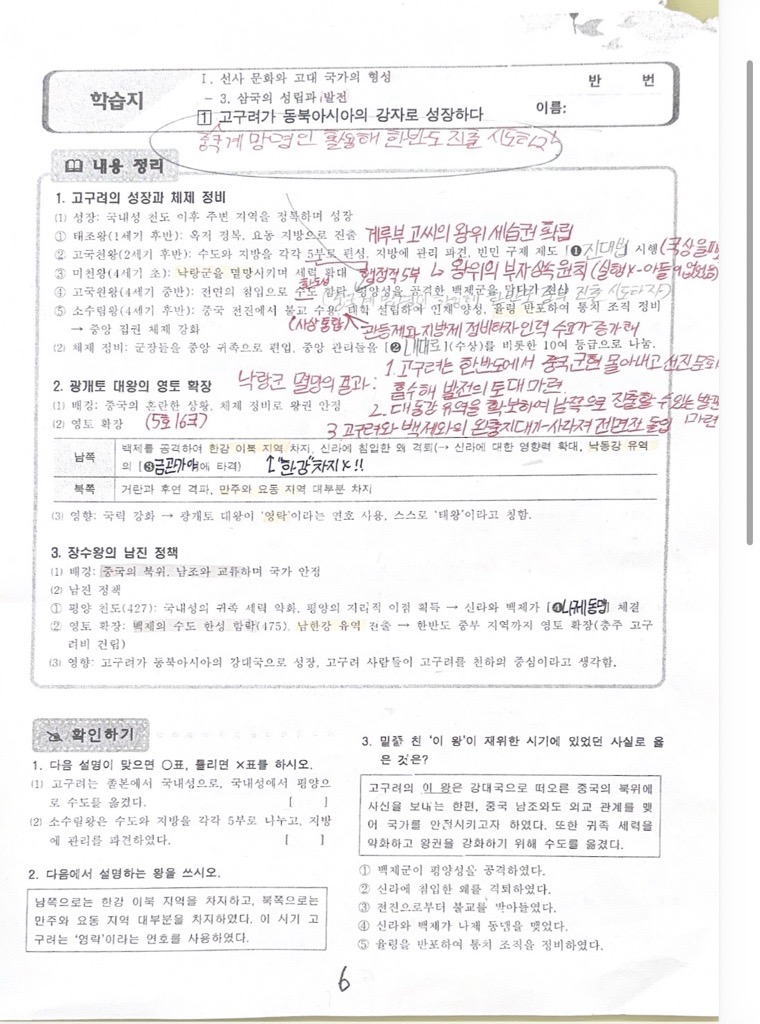 학습지
Ⅰ. 선사 문화와 고대 국가의 형성
- 3. 삼국의 성립과 발전
1 고구려가 동북아시아의 강자로 성장하다
반 번
이름:
중국계 망명인 활용해 한반도 진출 시도하다
내용 정리
1. 고구려의 성장과 체제 정비
(1) 성장: 국내성 천도 이후 주변 지역을 정복하며 성장
① 태조왕(1세기 후반): 옥저 정복, 요동 지방으로 진출 계루부 고씨의 왕위 세습권 확립
② 고국천왕(2세기 후반): 수도와 지방을 각각 5부로 편성, 지방에 관리 파견, 빈민 구제 제도 [❶진대법] 시행
행정적 5부 ↳ 왕위의 부자상속 원칙
③ 미천왕(4세기 초): 낙랑군을 멸망시키며 세력 확대
④ 고국원왕(4세기 중반): 전연의 침입으로 수도 함락, 평양성을 공격한 백제군을 막다가 전사
⑤ 소수림왕(4세기 후반): 중국 전진에서 불교 수용, 태학 설립하여 인재 양성, 율령 반포하여 통치 조직 정비
→ 중앙 집권 체제 강화
(사상 통합)
관등제와 지방제 정비타자 인력 수요가 증가해
(2) 체제 정비: 군장들을 중앙 귀족으로 편입, 중앙 관리들을 [❷대대로](수상)를 비롯한 10여 등급으로 나눔.
낙랑군 멸망의 결과: 1. 고구려는 한반도에서 중국군현 몰아내고 선진문화
흡수해 발전의 토대 마련
2. 대동강 유역을 확보하여 남쪽으로 진출할 수 있는 발판
마련
3 고구려와 백제와의 완충지대가 사라져 전면전 돌입
2. 광개토 대왕의 영토 확장
(1) 배경: 중국의 혼란한 상황, 체제 정비로 왕권 안정
(5호 16국)
(2) 영토 확장
남쪽 백제를 공격하여 한강 이북 지역 차지, 신라에 침입한 왜 격퇴(→ 신라에 대한 영향력 확대, 낙동강 유역
의 [❸금관가야]에 타격) ↑"한강"차지 X!!
북쪽 거란과 후연 격파, 만주와 요동 지역 대부분 차지
(3) 영향: 국력 강화 → 광개토 대왕이 '영락'이라는 연호 사용, 스스로 '태왕'이라고 칭함.
3. 장수왕의 남진 정책
(1) 배경: 중국의 북위, 남조와 교류하며 국가 안정
(2) 남진 정책
① 평양 천도(427): 국내성의 귀족 세력 약화, 평양의 지리적 이점 획득 → 신라와 백제가 [❹나제동맹] 체결
② 영토 확장: 백제의 수도 한성 함락(475), 남한강 유역 진출 → 한반도 중부 지역까지 영토 확장(충주 고구
려비 건립)
(3) 영향: 고구려가 동북아시아의 강대국으로 성장, 고구려 사람들이 고구려를 천하의 중심이라고 생각함.
확인하기
1. 다음 설명이 맞으면 ○표, 틀리면 ×표를 하시오.
(1) 고구려는 졸본에서 국내성으로, 국내성에서 평양으
로 수도를 옮겼다. [ ]
(2) 소수림왕은 수도와 지방을 각각 5부로 나누고, 지방
에 관리를 파견하였다. [ ]
2. 다음에서 설명하는 왕을 쓰시오.
남쪽으로는 한강 이북 지역을 차지하고, 북쪽으로는
만주와 요동 지역 대부분을 차지하였다. 이 시기 고
구려는 '영락'이라는 연호를 사용하였다.
3. 밑줄 친 '이 왕'이 재위한 시기에 있었던 사실로 옳
은 것은?
고구려의 이 왕은 강대국으로 떠오른 중국의 북위에
사신을 보내는 한편, 중국 남조와도 외교 관계를 맺
어 국가를 안정시키고자 하였다. 또한 귀족 세력을
약화하고 왕권을 강화하기 위해 수도를 옮겼다.
① 백제군이 평양성을 공격하였다.
② 신라에 침입한 왜를 격퇴하였다.
③ 전진으로부터 불교를 받아들였다.
④ 신라와 백제가 나제 동맹을 맺었다.
⑤ 율령을 반포하여 통치 조직을 정비하였다.
6